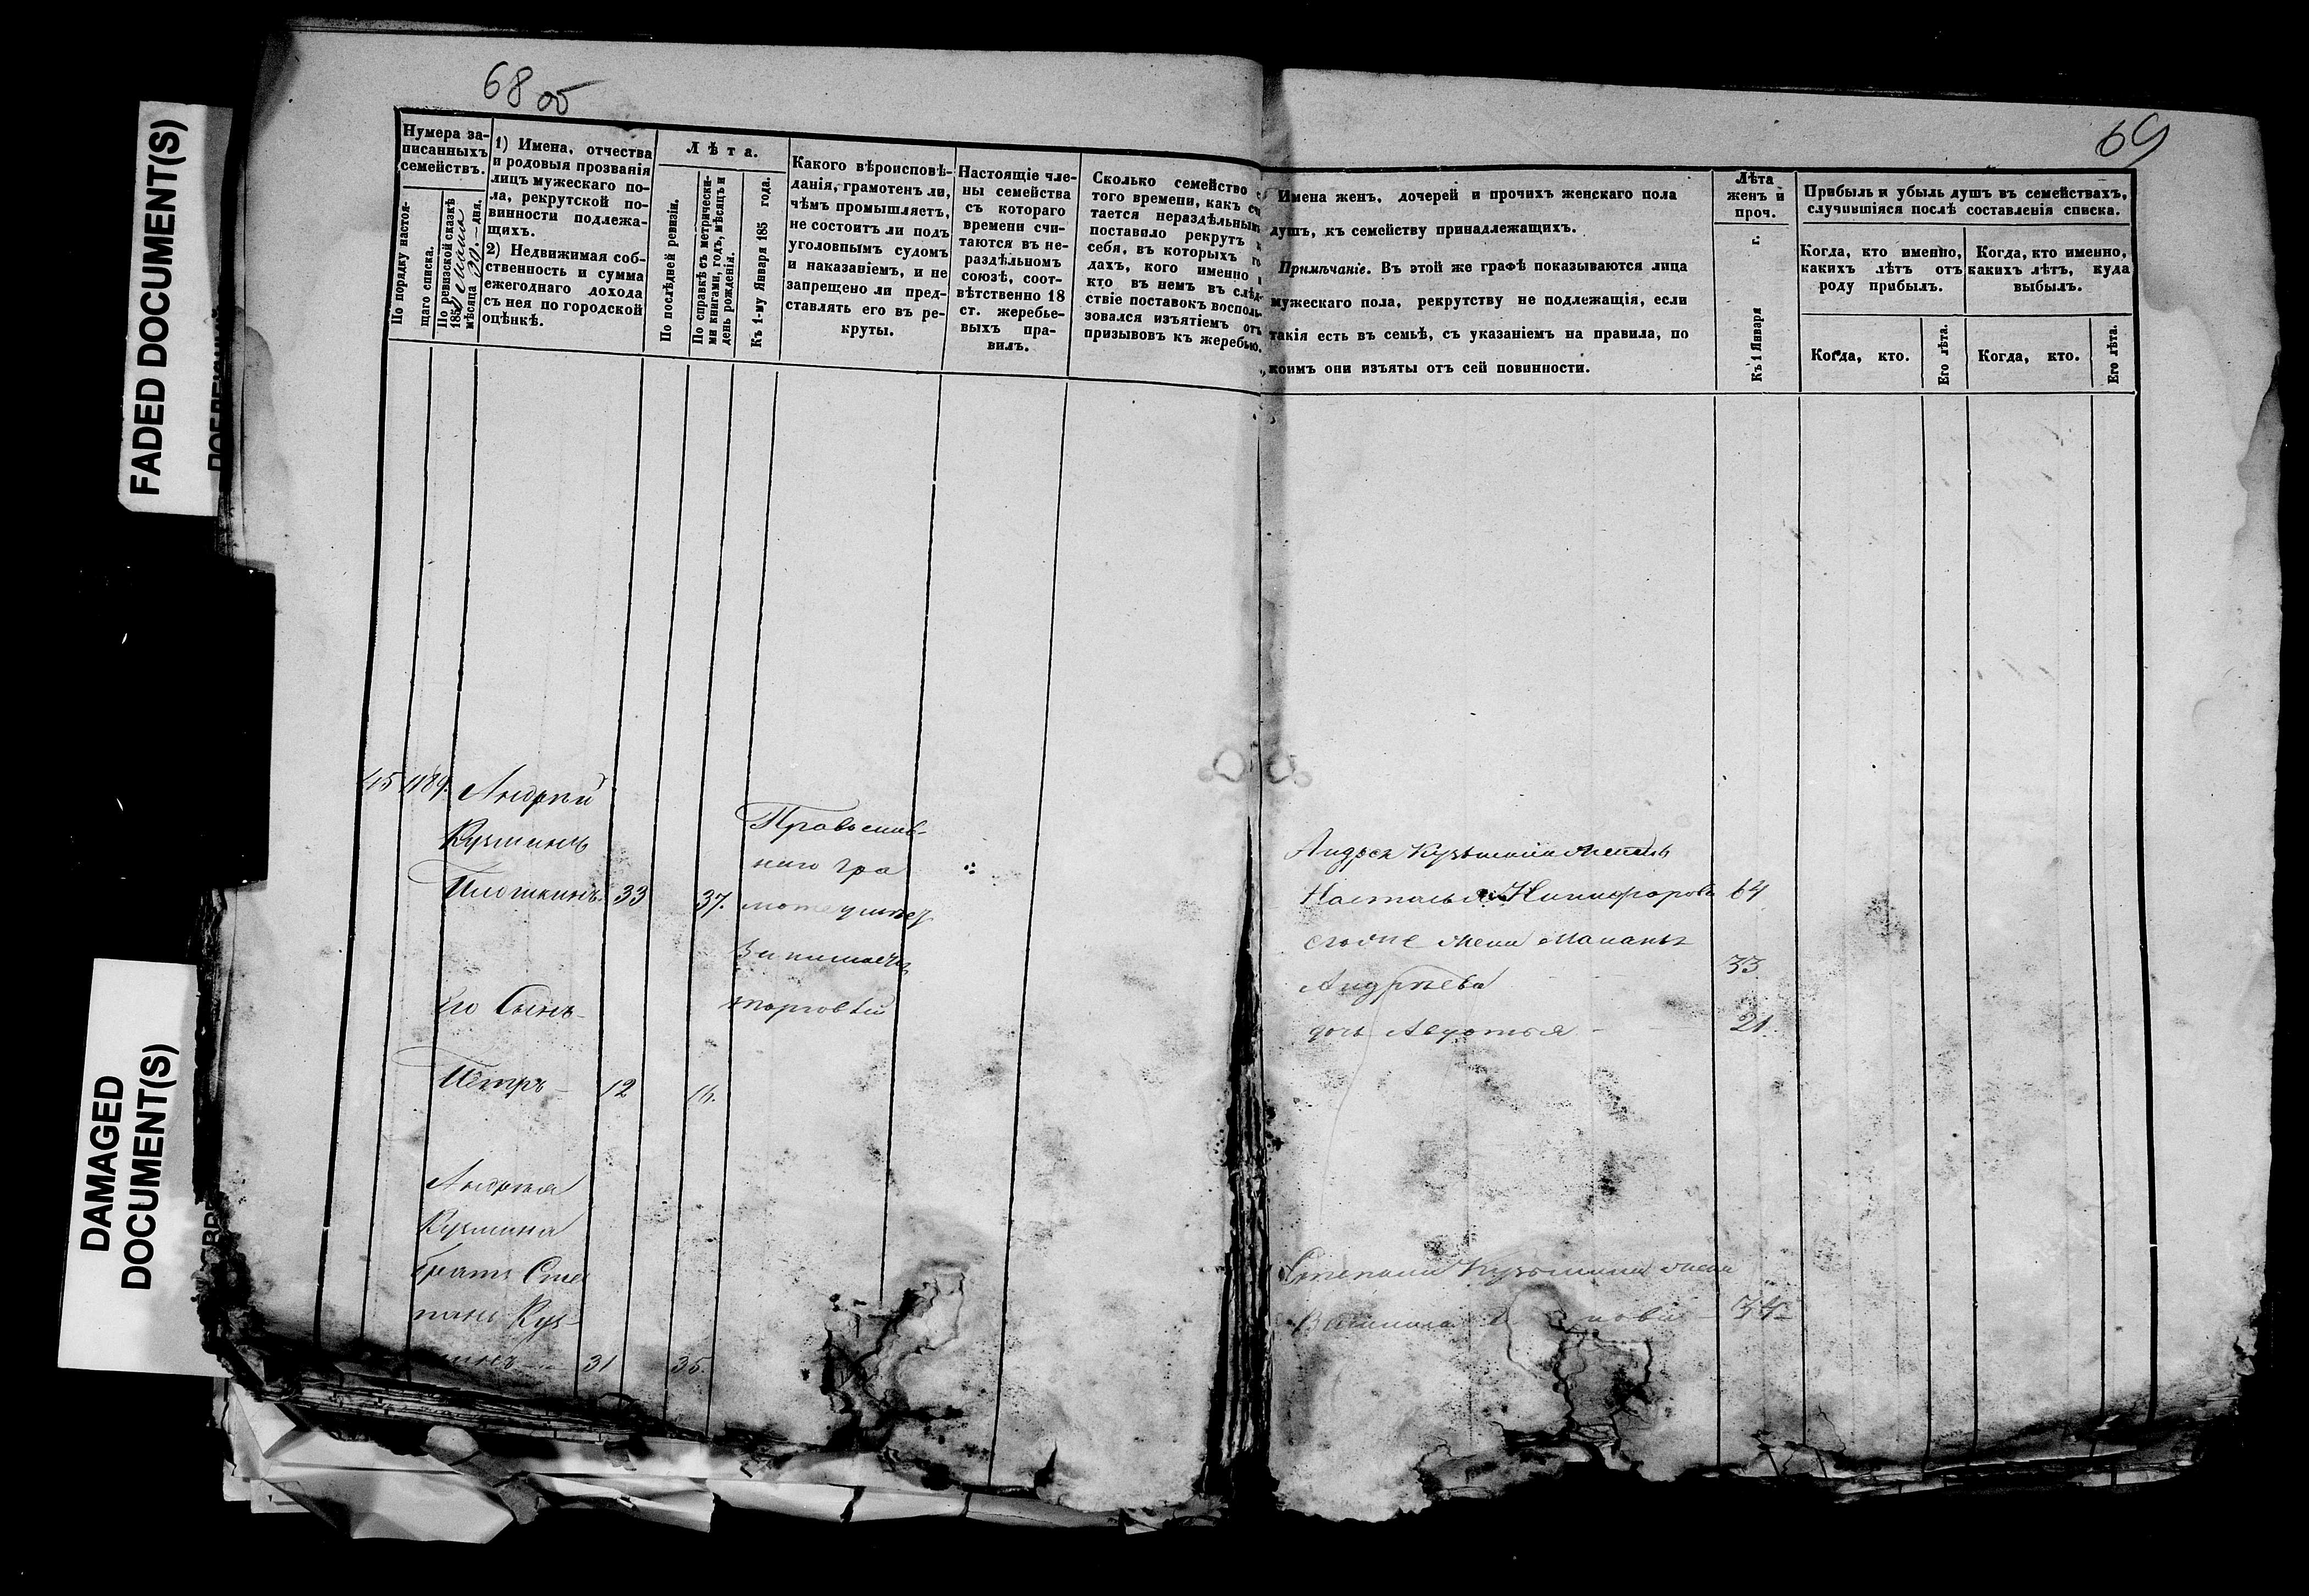 68 об
69
FADED DOCUMENT(S)
DAMAGED
DOCUMENT(S)
Нумера за-
писанныхъ
семействъ.
По порядку настоя-
щаго списка.
По ревизской сказкѣ
185
мѣсяца дня.
1) Имена, отчества
и родовыя прозванія
лицъ мужескаго по-
ла, рекрутской по-
винности подлежа-
щихъ.
2) Недвижимая соб-
ственность и сумма
ежегоднаго дохода
съ нея по городской
оцѣнкѣ.
Лѣта.
По послѣдней ревизіи.
По справкѣ съ метрически-
ми книгами, годъ, мѣсяцъ и
день рожденія.
Къ 1-му Января 185 года.
Какого вѣроисповѣ-
данія, грамотенъ ли,
чѣмъ промышляетъ,
не состоитъ ли подъ
уголовнымъ судомъ
и наказаніемъ, и не
запрещено ли пред-
ставлять его въ ре-
круты.
Настоящіе чле-
ны семейства
съ котораго
времени счи-
таются въ не-
раздѣльномъ
союзѣ, соот-
вѣтственно 18
ст. жеребье-
выхъ пра-
вилъ.
Сколько семейство с
того времени, какъ сч
тается нераздѣльнымъ
поставило рекрутъ
себя, въ которыхъ го
дахъ, кого именно и
кто въ немъ въ слѣд-
ствіе поставокъ восполь-
зовался изъятіемъ отъ
призывовъ къ жеребью.
Имена женъ, дочерей и прочихъ женскаго пола
душъ, къ семейству принадлежащихъ.
Примѣчаніе. Въ этой же графѣ показываются лица
мужескаго пола, рекрутству не подлежащія, если
такія есть въ семьѣ, съ указаніемъ на правила, по
коимъ они изъяты отъ сей повинности.
Лѣта
женъ и
проч.
Къ 1 Января г.
Прибыль и убыль душъ въ семействахъ,
случившіяся послѣ составленія списка.
Когда, кто именно,
какихъ лѣтъ отъ
роду прибылъ.
Когда, кто именно,
какихъ лѣтъ, куда
выбылъ.
Когда, кто.
Его лѣта.
Когда, кто.
Его лѣта.
45 1189. Андрѣй
Кузминъ
33 37.
Его Сынъ
Петръ 12 16.
Андрѣя
Кузмина
братъ Сте
панъ Куз
минъ 31 35.
Православ-
наго гра
мотеумѣет
Занимаеца
торговлей
Андрея Кузьмина
Настасья Никифорова 64
жена
Андрѣева 33
дочь Авдотья 21
Степана Кузьмина жена
Василиса нова 34